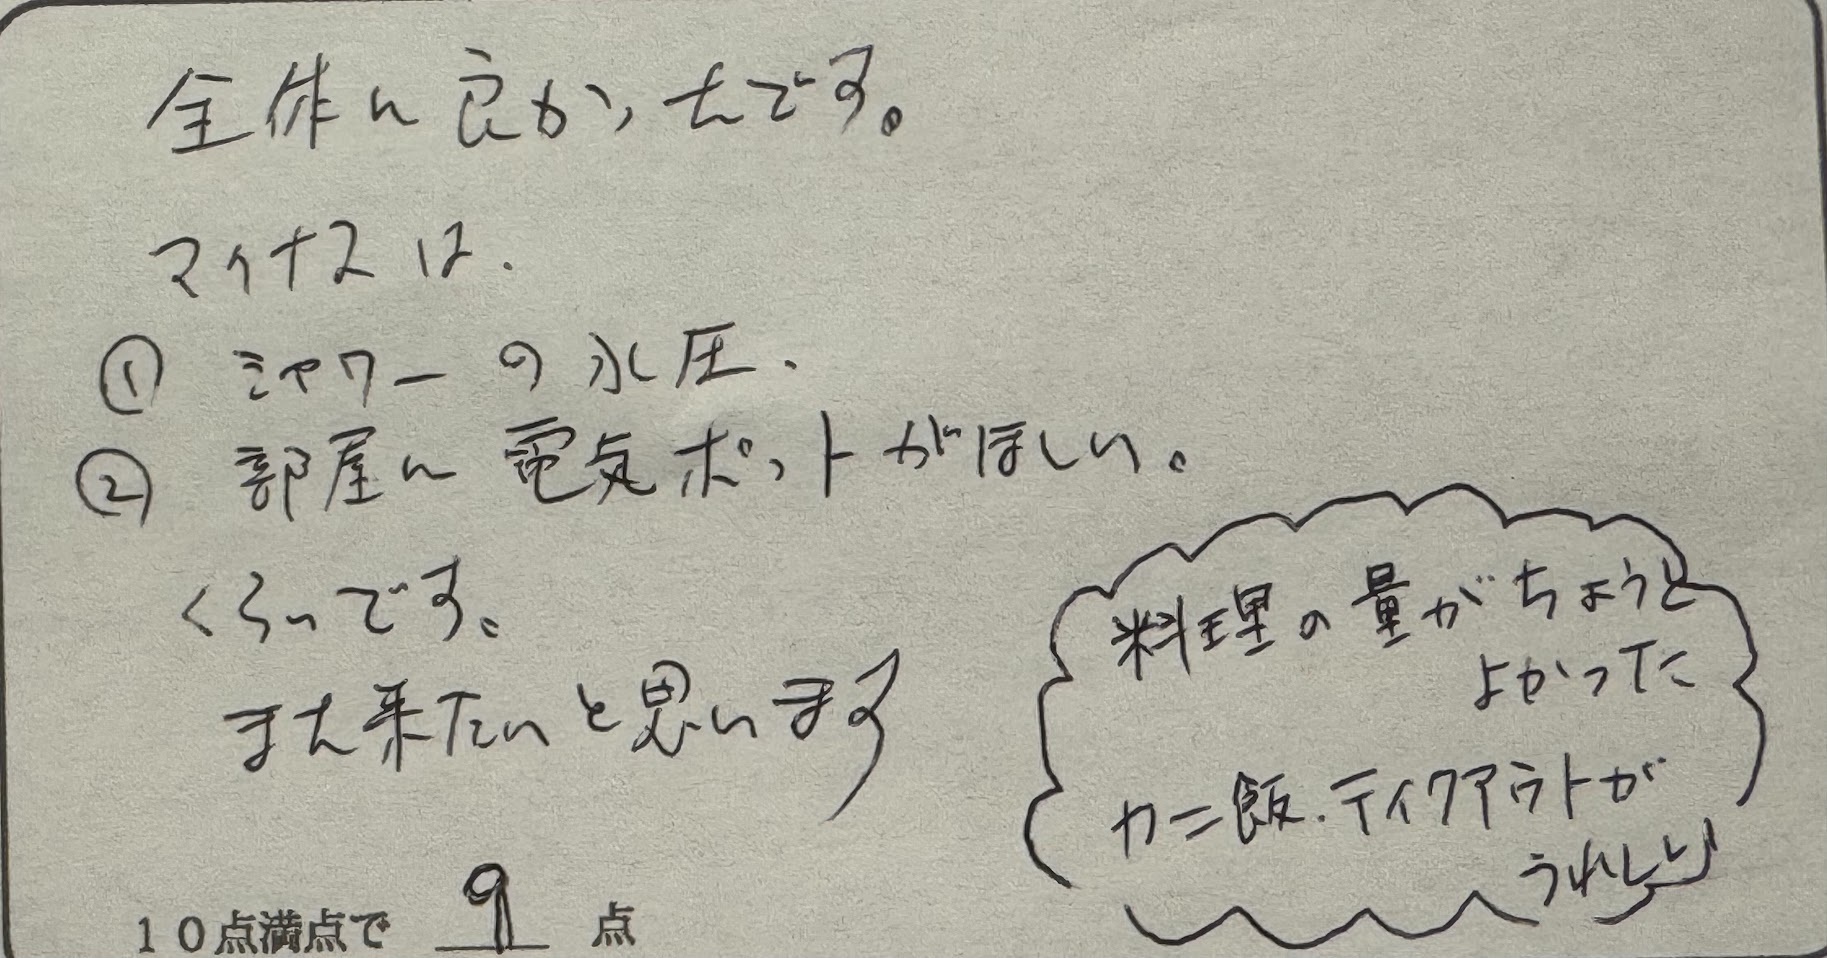 全体に良かったです。
マイナスは.
① シャワーの水圧.
② 部屋に電気ポットがほしい。
くらいです。
また来たいと思います
料理の量がちょうど
よかった
カニ飯.テイクアウトが
うれしい
10点満点で 9 点